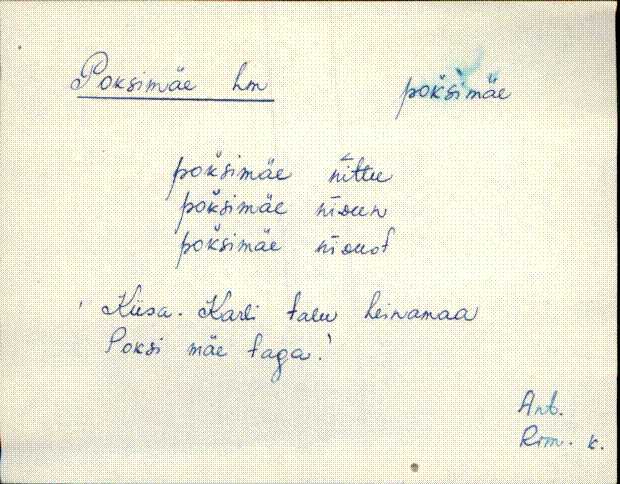 Poksimäe hm pok̆simäe
pok̆simäe nīttu
pok̆simäe nīdun
pok̆simäe nīdut
'Kiisa-Karli talu heinamaa
Poksi mäe taga.'
Ant.
Rõm. k.